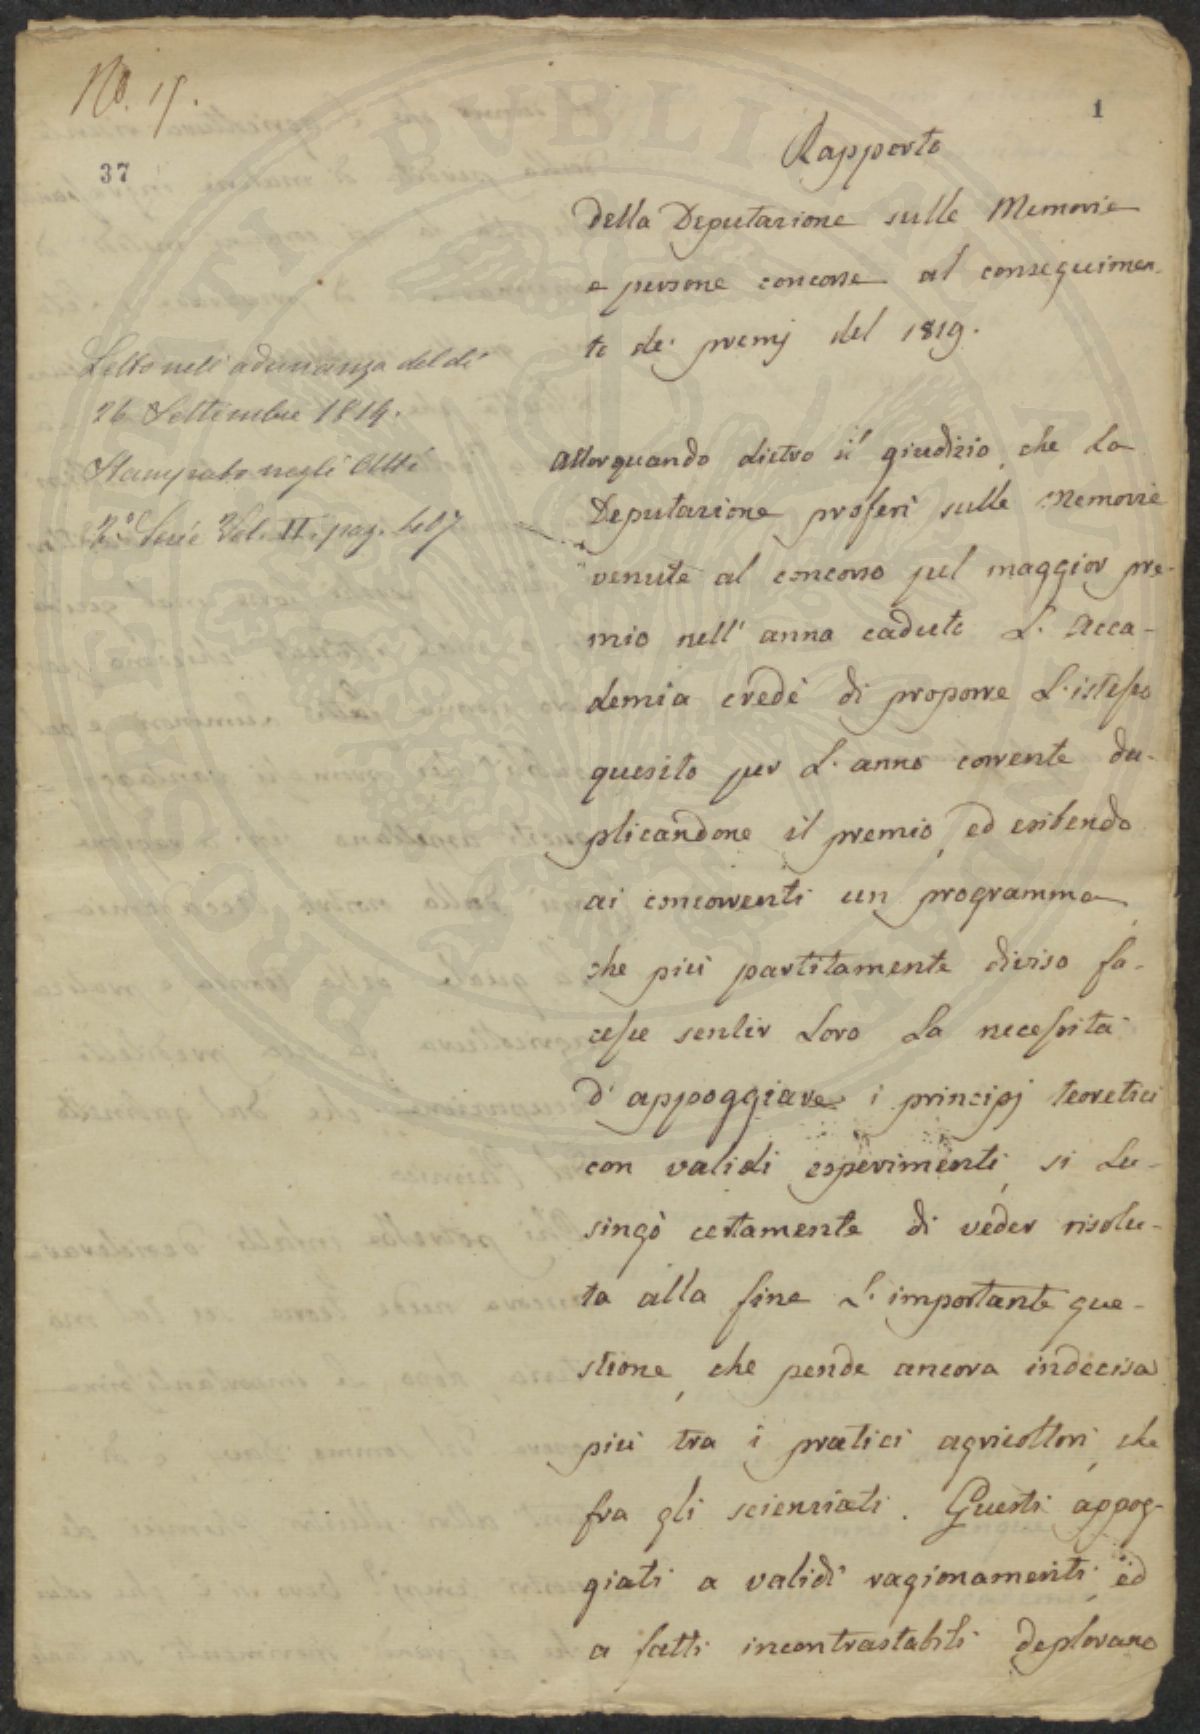 No. 15.
37
1
Rapporto
della Deputazione sulle Memorie
e persone concorse al conseguimen-
to de' premj del 1819.
Letto nell' adunanza del dì
26 Settembre 1819.
Stampato negli Atti
2.a Serie Vol. II. pag. 407
Allorquando dietro il giudizio, che la
Deputazione proferì sulle Memorie
venute al concorso pel maggior pre-
mio nell' anno caduto L' Acca-
demia credè di proporre L' istesso
quesito per L' anno corrente du-
plicandone il premio, ed esibendo
ai concorrenti un programma,
che più partitamente diviso fa-
cesse sentir loro la necessità
d' appoggiare i principj teoretici
con validi esperimenti, si lu-
singò certamente di veder risolu-
ta alla fine L' importante que-
stione, che pende ancora indecisa
più tra i pratici agricoltori, che
fra gli scienziati. Questi appog-
giati a validi ragionamenti, ed
a fatti incontrastabili deplorano